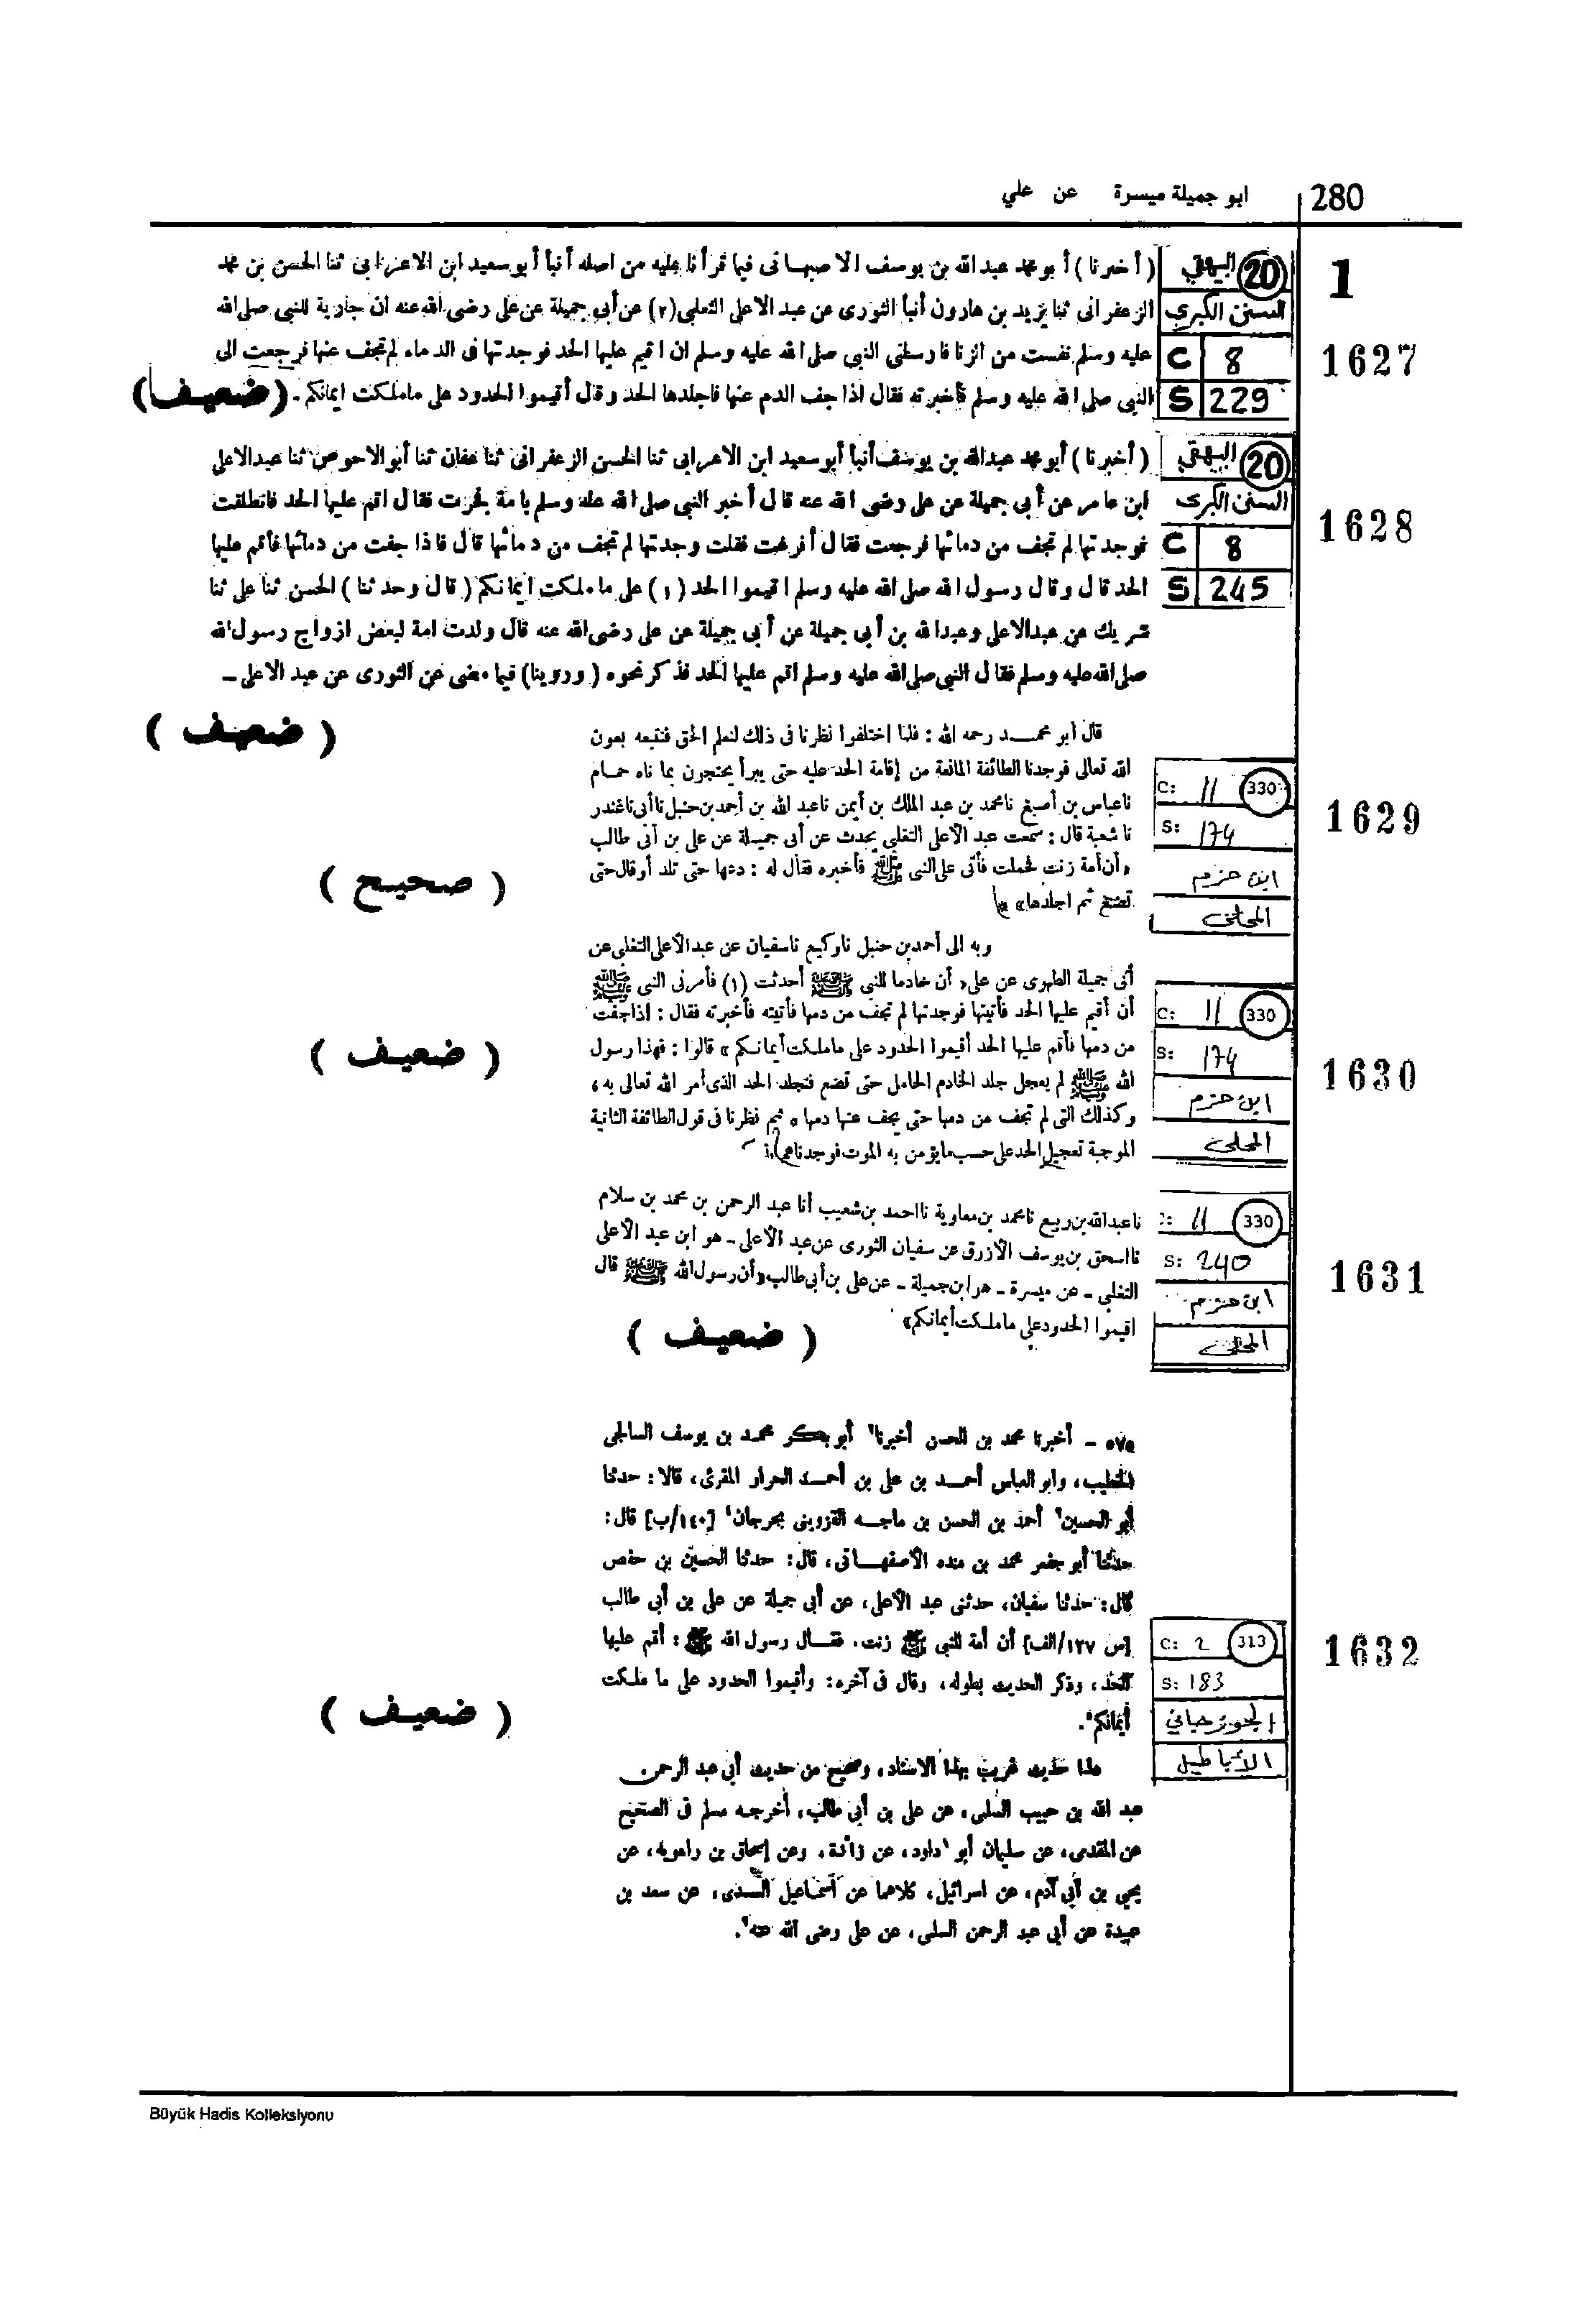 280
ابو جميلة ميسرة عن علي
1
20 البيهقي
السنن الكبري
C 8
S 229
1627
( أخبرنا ) أبو محمد عبدالله بن يوسف الاصبهانى فيما قرأنا عليه من اصله أنبأ أبو سعيد ابن الاعرابى ثنا الحسن بن محمد
الزعفرانى ثنا يزيد بن هارون أنبأ الثورى عن عبد الاعلى الثعلبى (٢) عن أبى جميلة عن على رضى الله عنه ان جارية للنبى صلى الله
عليه وسلم نفست من الزنا فارسلنى النبى صلى الله عليه وسلم ان اقيم عليها الحد فوجدتها فى الدماء لم تجف عنها فرجعت الى
النبى صلى الله عليه وسلم فأخبرته فقال اذا جف الدم عنها فاجلدها الحد وقال أقيموا الحدود على ما ملكت ايمانكم ـ
( ضعيف )
20 البيهقي
السنن الكبرى
C 8
S 245
1628
( أخبرنا ) أبو محمد عبدالله بن يوسف أنبأ أبو سعيد ابن الاعرابى ثنا الحسن الزعفرانى ثنا عفان ثنا أبو الاحوص ثنا عبدالاعلى
ابن عامر عن أبى جميلة عن على رضى الله عنه قال أخبر النبى صلى الله عليه وسلم بامة فجرت فقال اقم عليها الحد فانطلقت
فوجدتها لم تجف من دمائها فرجعت فقال أفرغت فقلت وجدتها لم تجف من دمائها قال فاذا جفت من دمائها فأقم عليها
الحد قال وقال رسول الله صلى الله عليه وسلم اقيموا الحد (١) على ما ملكت ايمانكم ( قال وحدثنا ) الحسن ثنا على ثنا
شريك عن عبدالاعلى وعبدالله بن أبى جميلة عن أبى جميلة عن على رضى الله عنه قال ولدت امة لبعض ازواج رسول الله
صلى الله عليه وسلم فقال النبى صلى الله عليه وسلم اقم عليها الحد فذكر نحوه ( وروينا ) فيما مضى عن الثورى عن عبد الاعلى ـ
( ضعيف )
C: 11 330
S: 174
ابن حزم
المحلى
1629
قال أبو محمد رحمه الله : فلما اختلفوا نظرنا فى ذلك لنعلم الحق فنتبعه بعون
الله تعالى فوجدنا الطائفة المانعة من إقامة الحد عليه حتى يبرأ يحتجون بما ناه حمام
نا عباس بن أصبغ نا محمد بن عبد الملك بن أيمن نا عبد الله بن أحمد بن حنبل نا أبى نا غندر
نا شعبة قال : سمعت عبد الأعلى التغلبى يحدث عن أبى جميلة عن على بن أبى طالب
« أن أمة زنت فحملت فأتى على النبى ﷺ فأخبره فقال له : دعها حتى تلد أو قال حتى
تضع ثم اجلدها »
( صحيح )
C: 11 330
S: 174
ابن حزم
المحلى
1630
وبه الى أحمد بن حنبل نا وكيع نا سفيان عن عبد الأعلى التغلبى عن
أبى جميلة الطهوى عن على « أن خادما للنبى ﷺ أحدثت (١) فأمرنى النبى ﷺ
أن أقيم عليها الحد فأتيتها فوجدتها لم تجف من دمها فأتيته فأخبرته فقال : اذا جفت
من دمها فأقم عليها الحد أقيموا الحدود على ما ملكت أيمانكم » قالوا : فهذا رسول
الله ﷺ لم يعجل جلد الخادم الحامل حتى تضع فتجلد الحد الذى أمر الله تعالى به ،
وكذلك التى لم تجف من دمها حتى يجف عنها دمها ، ثم نظرنا فى قول الطائفة الثانية
الموجبة تعجيل الحد على حسب ما يؤمن به الموت فوجدناهم
( ضعيف )
C: 11 330
S: 240
ابن حزم
المحلى
1631
نا عبدالله بن ربيع نا محمد بن معاوية نا احمد بن شعيب أنا عبد الرحمن بن محمد بن سلام
نا اسحق بن يوسف الأزرق عن سفيان الثورى عن عبد الأعلى ـ هو ابن عبد الأعلى
التغلبى ـ عن ميسرة ـ هو ابن جميلة ـ عن على بن أبى طالب « أن رسول الله ﷺ قال
اقيموا الحدود على ما ملكت أيمانكم »
( ضعيف )
٥٧٥ ـ أخبرنا محمد بن الحسن أخبرنا أبو بكر محمد بن يوسف
الخطيب ، وابو العباس أحمد بن على بن أحمد المقرئ ، قالا : حدثنا
أبو الحسين أحمد بن الحسن بن ماجه القزوينى بجرجان [١٤٠/ب] قال :
حدثنا أبو جعفر محمد بن منده الأصفهانى ، قال : حدثنا الحسين بن حفص
قال : حدثنا سفيان ، حدثنى عبد الأعلى ، عن أبى جميلة عن على بن أبى طالب
[س ١٢٧/الف] أن أمة للنبى ﷺ زنت ، فقال رسول الله ﷺ : أقم عليها
الحد ، وذكر الحديث بطوله ، وقال فى آخره : وأقيموا الحدود على ما ملكت
أيمانكم .
( ضعيف )
C: 2 313
S: 183
الجوزجاني
الأباطيل
1632
هذا حديث غريب بهذا الاسناد ، وصحيح من حديث أبى عبد الرحمن
عبد الله بن حبيب السلمى ، عن على بن أبى طالب ، أخرجه مسلم فى الصحيح
عن المقدمى ، عن سليمان أبو داود ، عن زائدة ، وعن إسحاق بن راهويه ، عن
يحيى بن أبى آدم ، عن اسرائيل ، كلاهما عن اسماعيل السدى ، عن سعد بن
عبيدة عن أبى عبد الرحمن السلمى ، عن على رضى الله عنه .
Büyük Hadis Kolleksiyonu